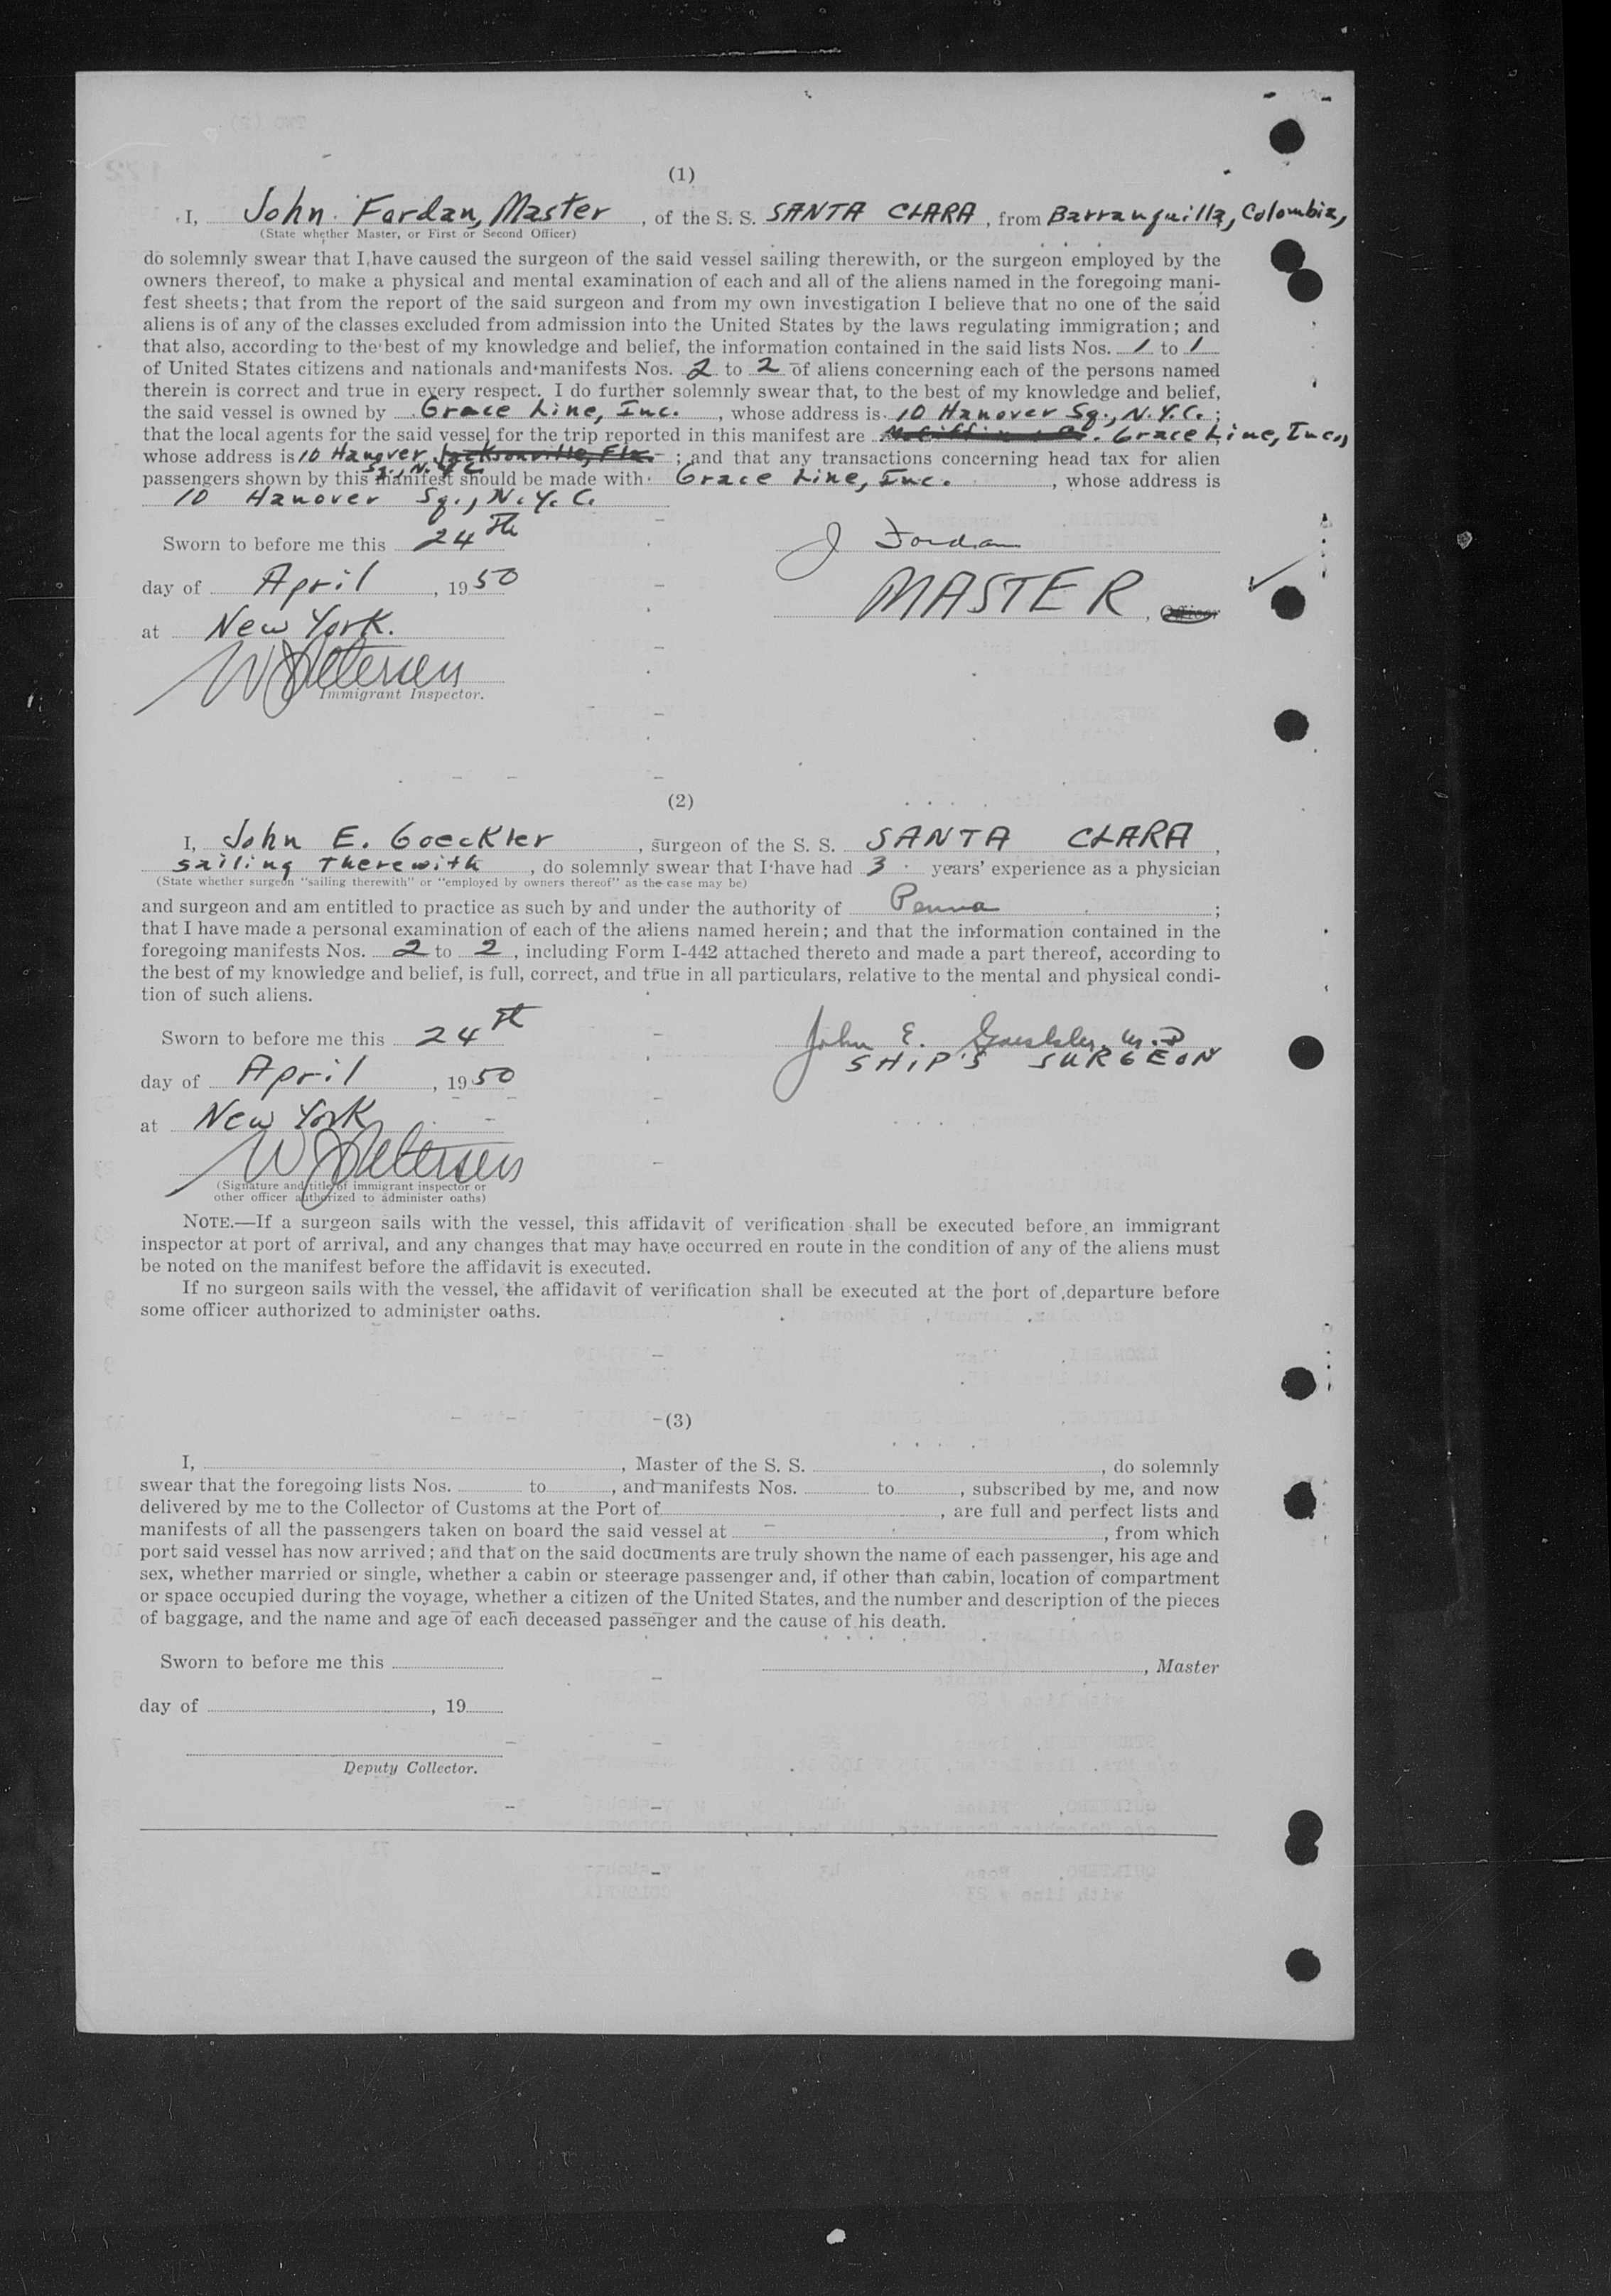 (1)
I, John Fordan, Master, of the S. S. SANTA CLARA, from Barranquilla, Colombia,
(State whether Master, or First or Second Officer)
do solemnly swear that I have caused the surgeon of the said vessel sailing therewith, or the surgeon employed by the
owners thereof, to make a physical and mental examination of each and all of the aliens named in the foregoing mani-
fest sheets; that from the report of the said surgeon and from my own investigation I believe that no one of the said
aliens is of any of the classes excluded from admission into the United States by the laws regulating immigration; and
that also, according to the best of my knowledge and belief, the information contained in the said lists Nos. 1 to 1
of United States citizens and nationals and manifests Nos. 2 to 2 of aliens concerning each of the persons named
therein is correct and true in every respect. I do further solemnly swear that, to the best of my knowledge and belief,
the said vessel is owned by Grace Line, Inc., whose address is 10 Hanover Sq., N.Y.C.;
that the local agents for the said vessel for the trip reported in this manifest are Grace Line, Inc.,
whose address is 10 Hanover Jacksonville, Fla. ; and that any transactions concerning head tax for alien
Sq., N.Y.C.
passengers shown by this manifest should be made with Grace Line, Inc., whose address is
10 Hanover Sq., N.Y.C.
Sworn to before me this 24th
J Fordan
day of April, 1950
MASTER, Officer
at New York.
W J Petersen
Immigrant Inspector.
(2)
I, John E. Goeckler, surgeon of the S. S. SANTA CLARA,
sailing Therewith, do solemnly swear that I have had 3 years' experience as a physician
(State whether surgeon "sailing therewith" or "employed by owners thereof" as the case may be)
and surgeon and am entitled to practice as such by and under the authority of Penna;
that I have made a personal examination of each of the aliens named herein; and that the information contained in the
foregoing manifests Nos. 2 to 2, including Form I-442 attached thereto and made a part thereof, according to
the best of my knowledge and belief, is full, correct, and true in all particulars, relative to the mental and physical condi-
tion of such aliens.
Sworn to before me this 24th
John E. Goeckler, M.D
SHIP'S SURGEON
day of April, 1950
at New York
W J Petersen
(Signature and title of immigrant inspector or
other officer authorized to administer oaths)
NOTE.—If a surgeon sails with the vessel, this affidavit of verification shall be executed before an immigrant
inspector at port of arrival, and any changes that may have occurred en route in the condition of any of the aliens must
be noted on the manifest before the affidavit is executed.
If no surgeon sails with the vessel, the affidavit of verification shall be executed at the port of departure before
some officer authorized to administer oaths.
(3)
I, , Master of the S. S. , do solemnly
swear that the foregoing lists Nos. to , and manifests Nos. to , subscribed by me, and now
delivered by me to the Collector of Customs at the Port of , are full and perfect lists and
manifests of all the passengers taken on board the said vessel at , from which
port said vessel has now arrived; and that on the said documents are truly shown the name of each passenger, his age and
sex, whether married or single, whether a cabin or steerage passenger and, if other than cabin, location of compartment
or space occupied during the voyage, whether a citizen of the United States, and the number and description of the pieces
of baggage, and the name and age of each deceased passenger and the cause of his death.
Sworn to before me this
, Master
day of , 19
Deputy Collector.